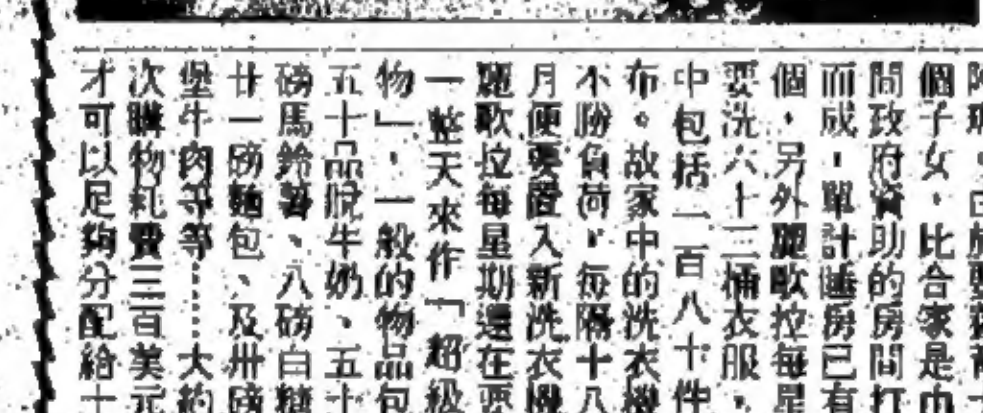 個子女，比合家是由
間政府資助的房間打
而成，單計睡房已有
個，另外麗歌拉每星
要洗六十三桶衣服，
中包括二百八十件
布。故家中的洗衣機
不勝負荷，每隔十八
月便要置入新洗衣機
麗歌拉每星期還在要
一整天來作「超級
物」，一般的物品包
五十品脫牛奶、五十
磅馬鈴薯、八磅白糖
廿一磅麵包、及卅磅
堡牛肉等等……大約
次購物耗費三百美元
才可以足夠分配給十